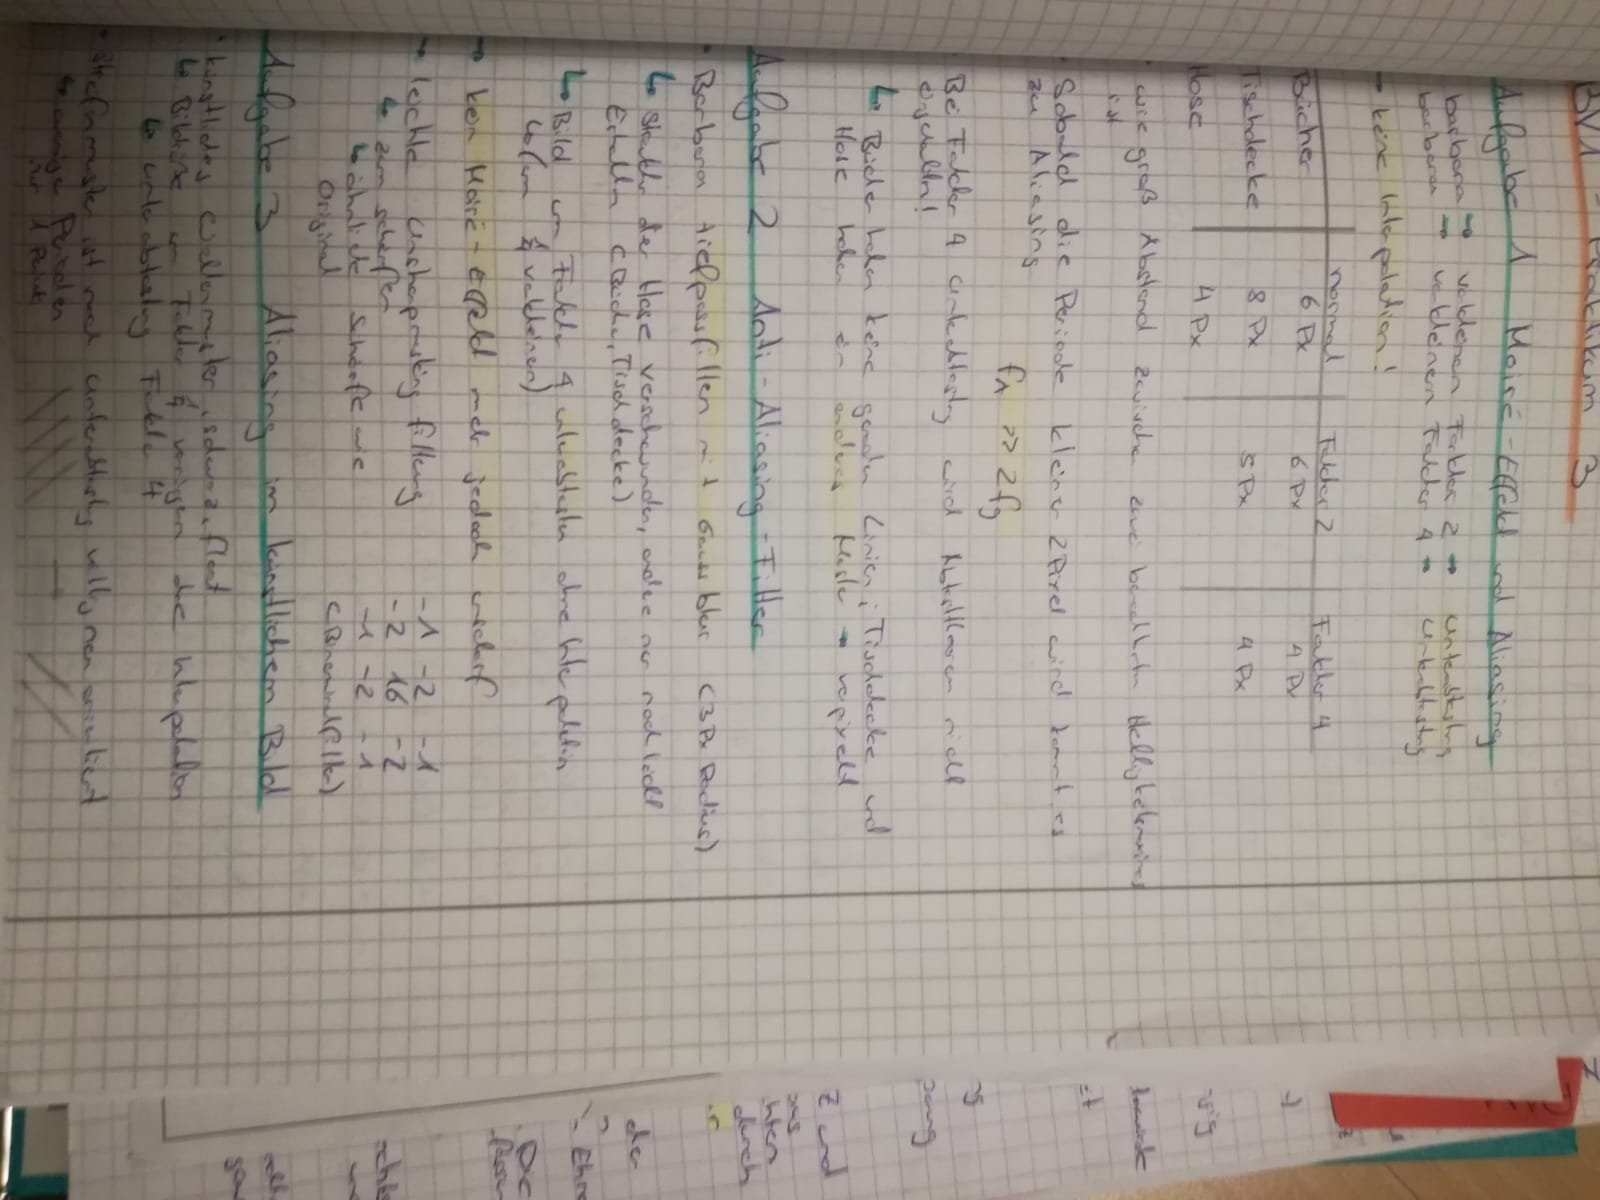 BV1 - Praktikum 3
Aufgabe 1 Moiré-Effekt und Aliasing
barbara → verkleinern Faktor 2 → Unterabtastung
barbara → verkleinern Faktor 4 → Unterabtastung
→ keine Interpolation!
normal Faktor 2 Faktor 4
Bücher 6 Px 6 Px 4 Px
Tischdecke 8 Px 5 Px 4 Px
Hose 4 Px
· wie groß Abstand zwischen zwei benachbarten
ist
· Sobald die Periode kleiner 2 Pixel wird kommt es
zu Aliasing
fA >> 2fg
Bei Faktor 4 Unterabtastung wird Abtasttheorem nicht
eingehalten!
↳ Bücher haben keine geraden Linien; Tischdecke und
Hose haben ein anderes Muster → verpixelt
Aufgabe 2 Anti-Aliasing-Filter
· Barbara tiefpassfiltern mit Gauss blur (3Px Radius)
↳ Struktur der Hose verschwunden, andere nur noch leicht
Erhalten (Bücher, Tischdecke)
↳ Bild um Faktor 4 unterabtasten ohne Interpolation
↳ (um ¼ verkleinern)
→ kein Moiré-Effekt mehr jedoch unscharf
→ leichte Unscharfmaskierung filterung
↳ zum schärfen
↳ ähnliche Schärfe wie
Original
-1 -2 -1
-2 16 -2
-1 -2 -1
(Binomialfilter)
Aufgabe 3 Aliasing im künstlichem Bild
· künstliches Wellenmuster, schwarz, float
↳ Bildgröße um Faktor ¼ verringern ohne Interpolation
↳ Unterabtastung Faktor 4
· Streifenmuster ist nach Unterabtastung völlig neu orientiert
↳ weniger Perioden
der
durch